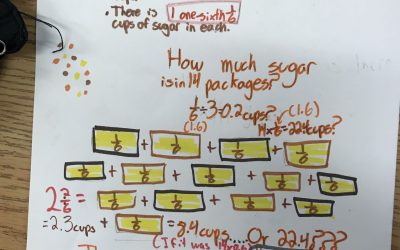 • There is 1 one-sixth 1/6
cups of sugar in each.
How much sugar
is in 14 packages?
1/6 ÷ 3 = 0.2 cups? (1.6)
(1.6) 14 x 1/6 = 22.4 cups?
1/6 + 1/6 + 1/6 + 1/6
1/6 + 1/6 + 1/6 + 1/6 + 1/6
2 2/6 = 1/6 + 1/6 + 1/6 + 1/6
= 2.3 cups + 1/6 = 8.4 cups... Or 22.4???
(If it was